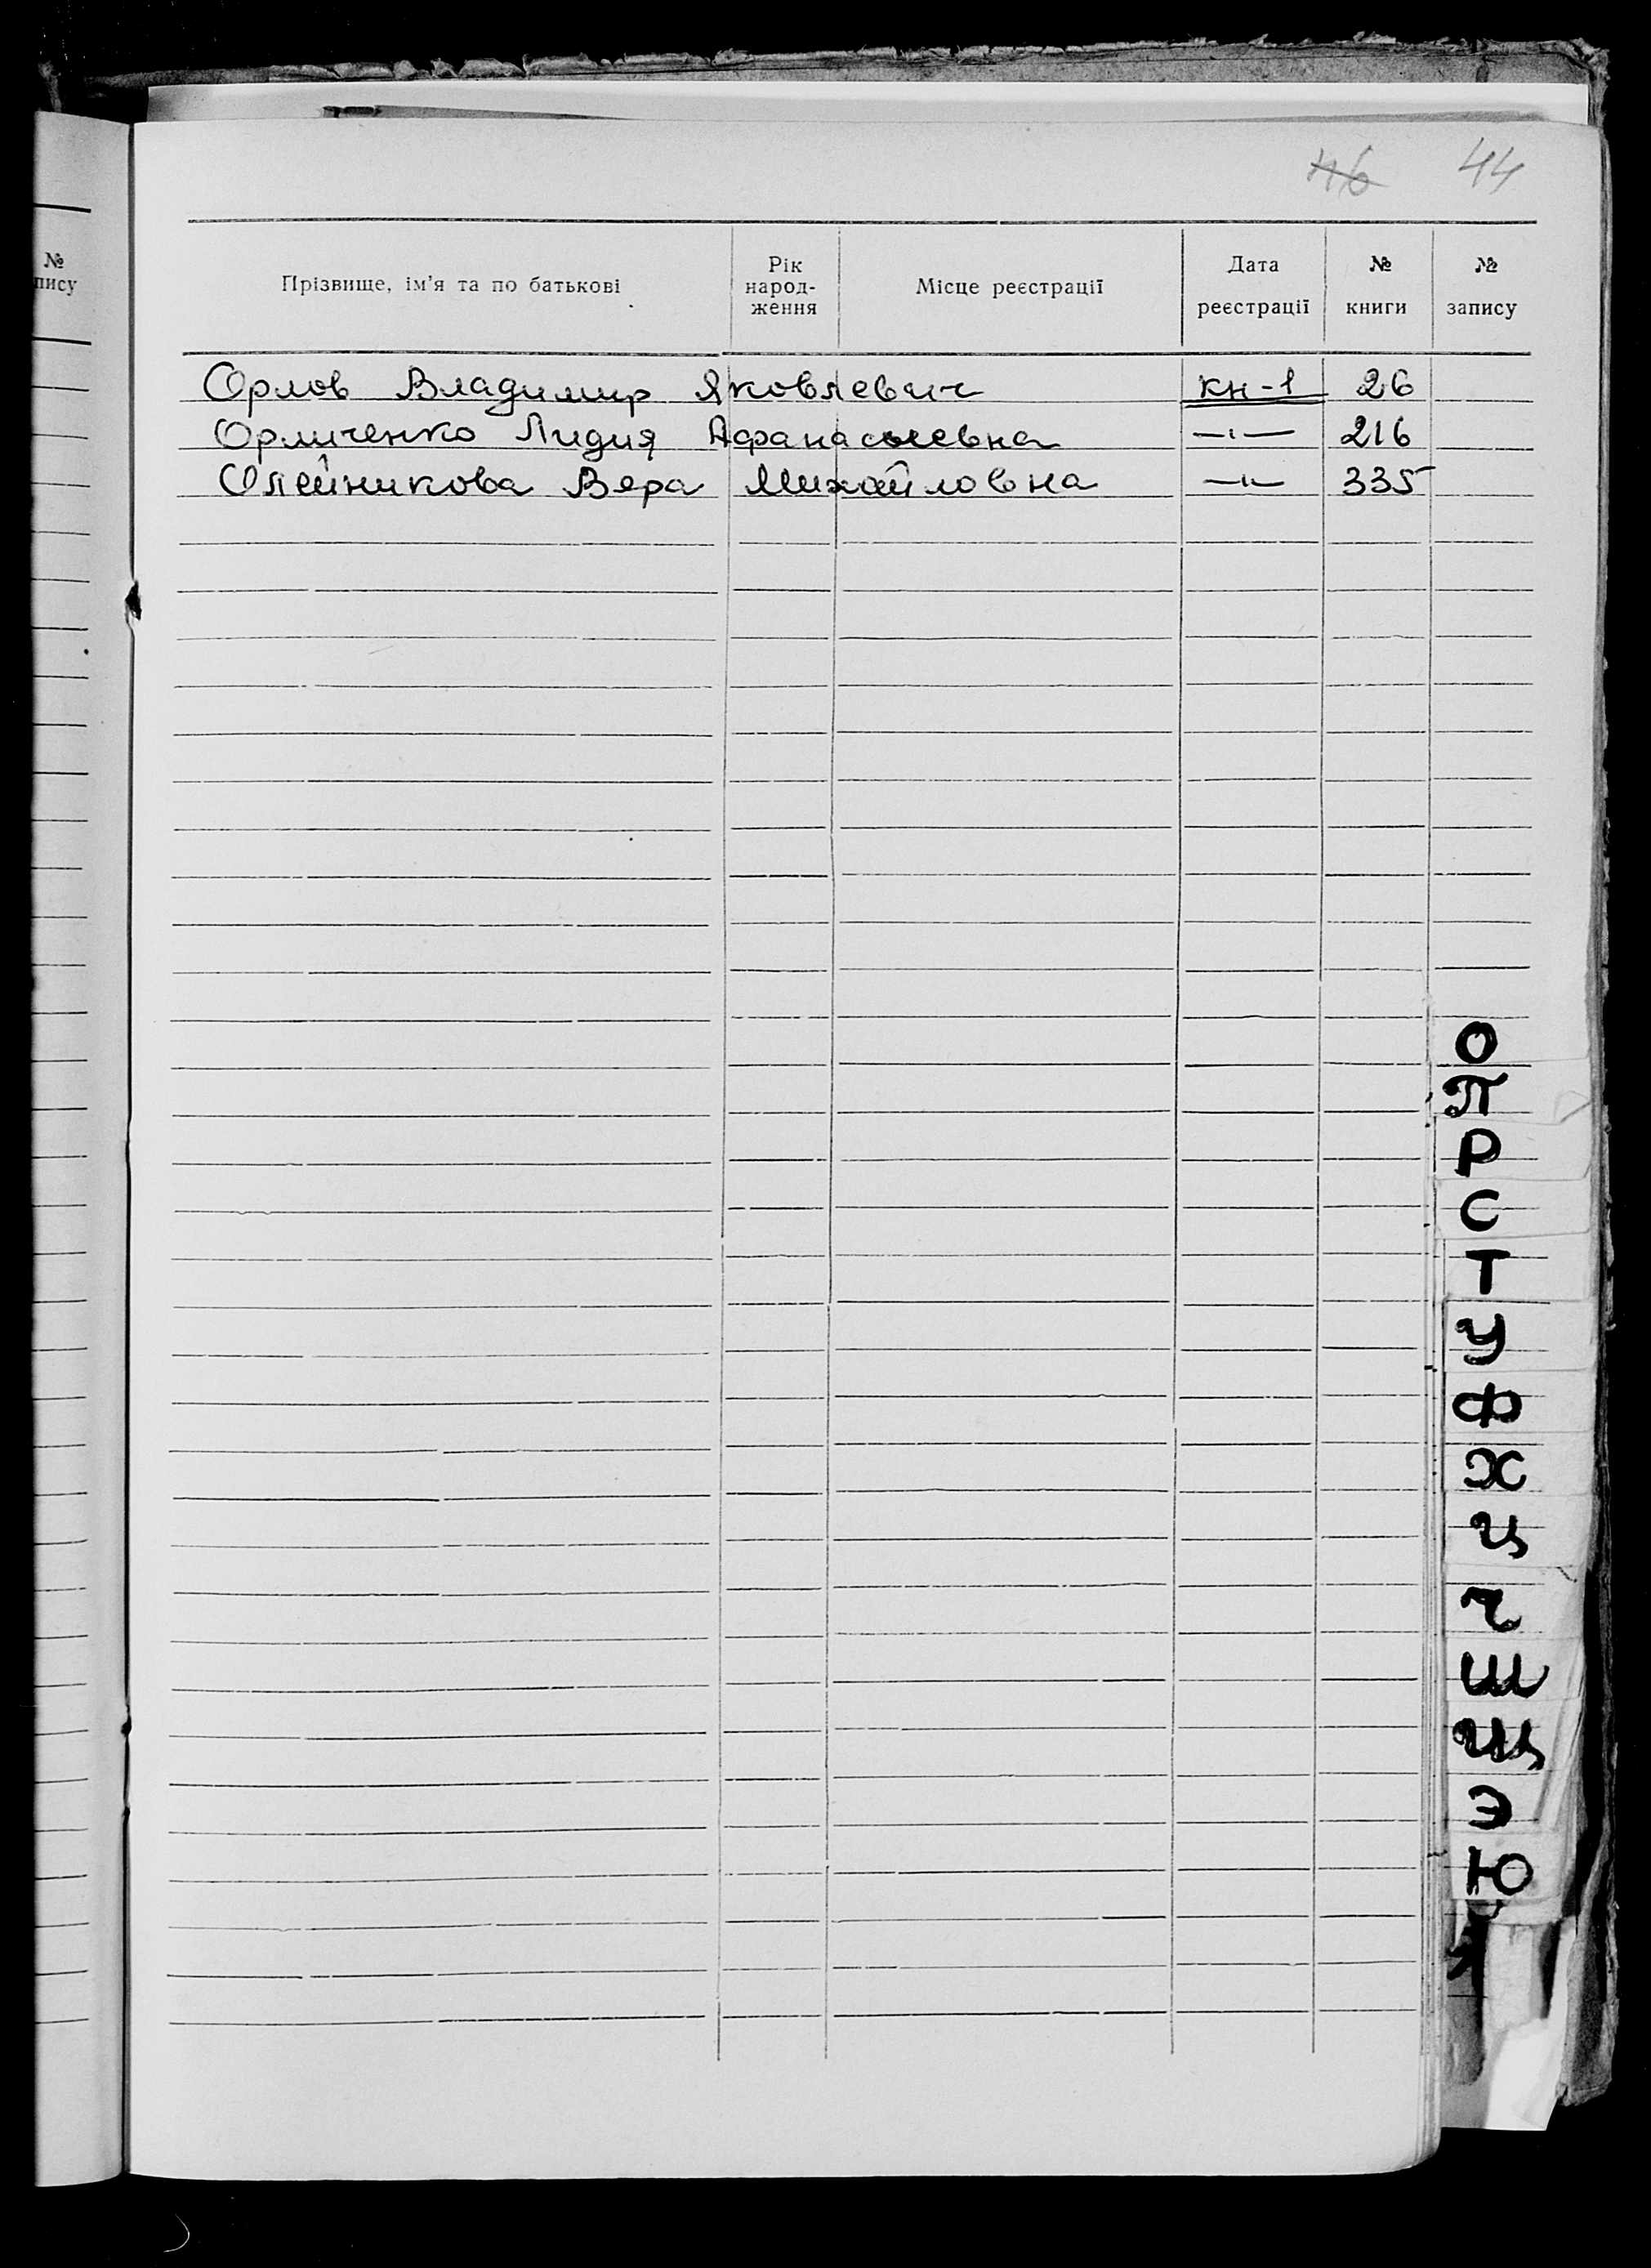 46 44
№
пису
Прізвище, ім'я та по батькові
Рік
народ-
ження
Місце реєстрації
Дата
реєстрації
№
книги
№
запису
Орлов Владимир Яковлевич кн-1 26
Орличенко Лидия Афанасьевна —"— 216
Олейникова Вера Михайловна —"— 335
О
П
Р
С
Т
У
Ф
Х
Ц
Ч
Ш
Щ
Э
Ю